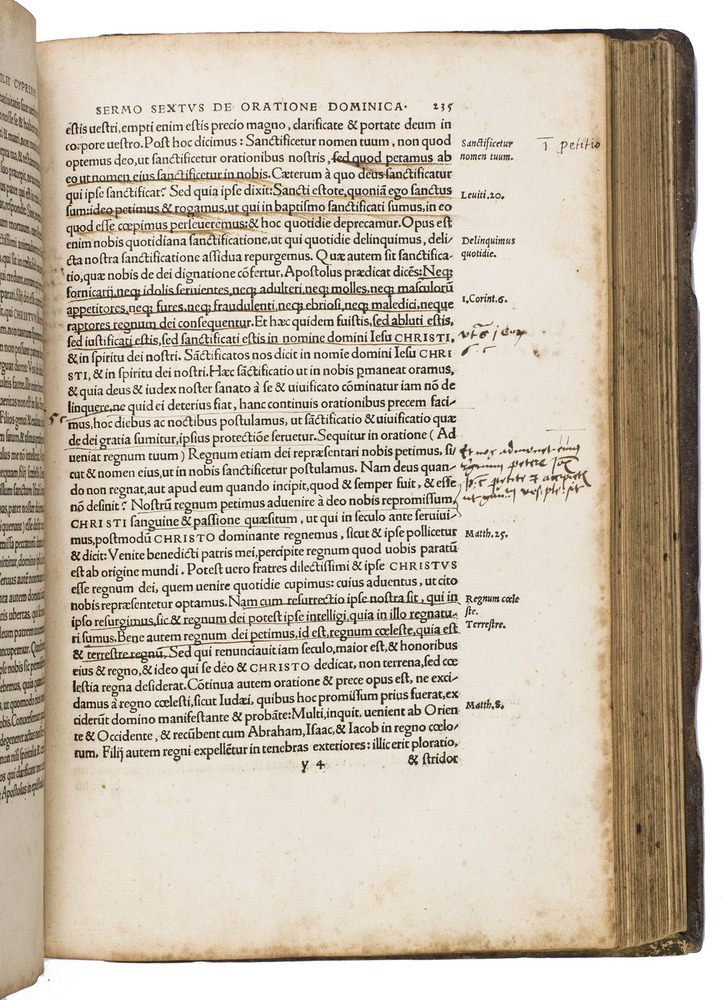 SERMO SEXTVS DE ORATIONE DOMINICA. 235
estis uestri, empti enim estis precio magno, clarificate & portate deum in
corpore uestro. Post hoc dicimus: Sanctificetur nomen tuum, non quod
optemus deo, ut sanctificetur orationibus nostris, sed quod petamus ab
eo ut nomen eius sanctificetur in nobis. Cæterum à quo deus sanctificatur
qui ipse sanctificat? Sed quia ipse dixit: Sancti estote, quoniã ego sanctus
sum: ideo petimus & rogamus, ut qui in baptismo sanctificati sumus, in eo
quod esse cœpimus perseueremus: & hoc quotidie deprecamur. Opus est
enim nobis quotidiana sanctificatione, ut qui quotidie delinquimus, deli/
cta nostra sanctificatione assidua repurgemus. Quæ autem sit sanctifica/
tio, quæ nobis de dei dignatione cõfertur, Apostolus prædicat dicẽs: Neqꝫ
fornicarij, neqꝫ idolis seruientes, neqꝫ adulteri, neqꝫ molles, neqꝫ masculorũ
appetitores, neqꝫ fures, neqꝫ fraudulenti, neqꝫ ebriosi, neqꝫ maledici, neque
raptores regnum dei consequentur. Et hæc quidem fuistis, sed abluti estis,
sed iustificati estis, sed sanctificati estis in nomine domini Iesu CHRISTI,
& in spiritu dei nostri. Sãctificatos nos dicit in nomĩe domini Iesu CHRI
STI, & in spiritu dei nostri. Hæc sãctificatio ut in nobis ꝑmaneat oramus,
& quia deus & iudex noster sanato à se & uiuificato cõminatur iam nõ de
linquere, ne quid ei deterius fiat, hanc continuis orationibus precem faci/
mus, hoc diebus ac noctibus postulamus, ut sãctificatio & uiuificatio quæ
de dei gratia sumitur, ipsius protectiõe seruetur. Sequitur in oratione (Ad
ueniat regnum tuum) Regnum etiam dei repræsentari nobis petimus, si/
cut & nomen eius, ut in nobis sanctificetur postulamus. Nam deus quan/
do non regnat, aut apud eum quando incipit, quod & semper fuit, & esse
nõ desinit? Nostrũ regnum petimus aduenire à deo nobis repromissum,
CHRISTI sanguine & passione quæsitum, ut qui in seculo ante seruiui/
mus, postmodũ CHRISTO dominante regnemus, sicut & ipse pollicetur
& dicit: Venite benedicti patris mei, percipite regnum quod uobis paratũ
est ab origine mundi. Potest uero fratres dilectissimi & ipse CHRISTVS
esse regnum dei, quem uenire quotidie cupimus: cuius aduentus, ut cito
nobis repræsentetur optamus. Nam cum resurrectio ipse nostra sit, qui in
ipso resurgimus, sic & regnum dei potest ipse intelligi, quia in illo regnatu/
ri sumus. Bene autem regnum dei petimus, id est, regnum cœleste, quia est
& terrestre regnũ. Sed qui renunciauit iam seculo, maior est, & honoribus
eius & regno, & ideo qui se deo & CHRISTO dedicat, non terrena, sed cœ
lestia regna desiderat. Cõtinua autem oratione & prece opus est, ne exci/
damus à regno cœlesti, sicut Iudæi, quibus hoc promissum prius fuerat, ex
ciderũt domino manifestante & probãte: Multi, inquit, uenient ab Orien
te & Occidente, & recũbent cum Abraham, Isaac, & Iacob in regno cœlo/
rum. Filij autem regni expellẽtur in tenebras exteriores: illic erit ploratio,
y 4 & stridor
Sanctificetur
nomen tuum.
petitio
Leuiti. 20.
Delinquimus
quotidie.
1. Corint. 6.
Matth. 25.
Regnum cœle
ste.
Terrestre.
Matth. 8.